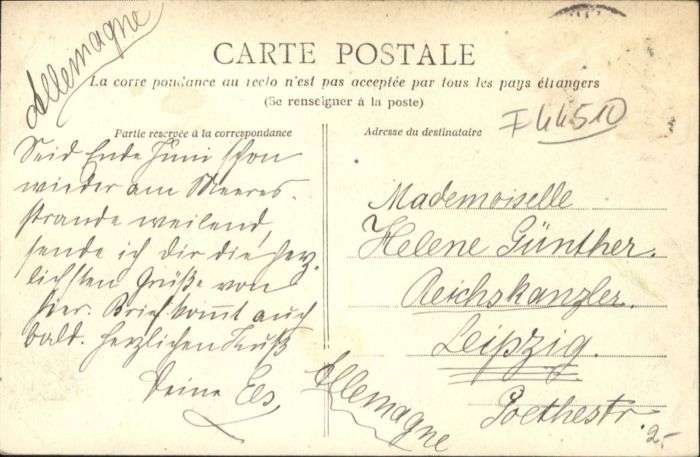 Allemagne
CARTE POSTALE
La correspondance au recto n'est pas acceptée par tous les pays étrangers
(Se renseigner à la poste)
F 44510
Partie réservée à la correspondance
Adresse du destinataire
Seid Ende Juni schon
wieder am Meeres-
strande weilend,
sende ich dir die herz-
lichsten Grüße von
hier. Brief kommt auch
bald. Herzlichen Kuß
Deine
Mademoiselle
Helene Günther.
Reichskanzler.
Leipzig.
Goethestr.
Allemagne
2.-